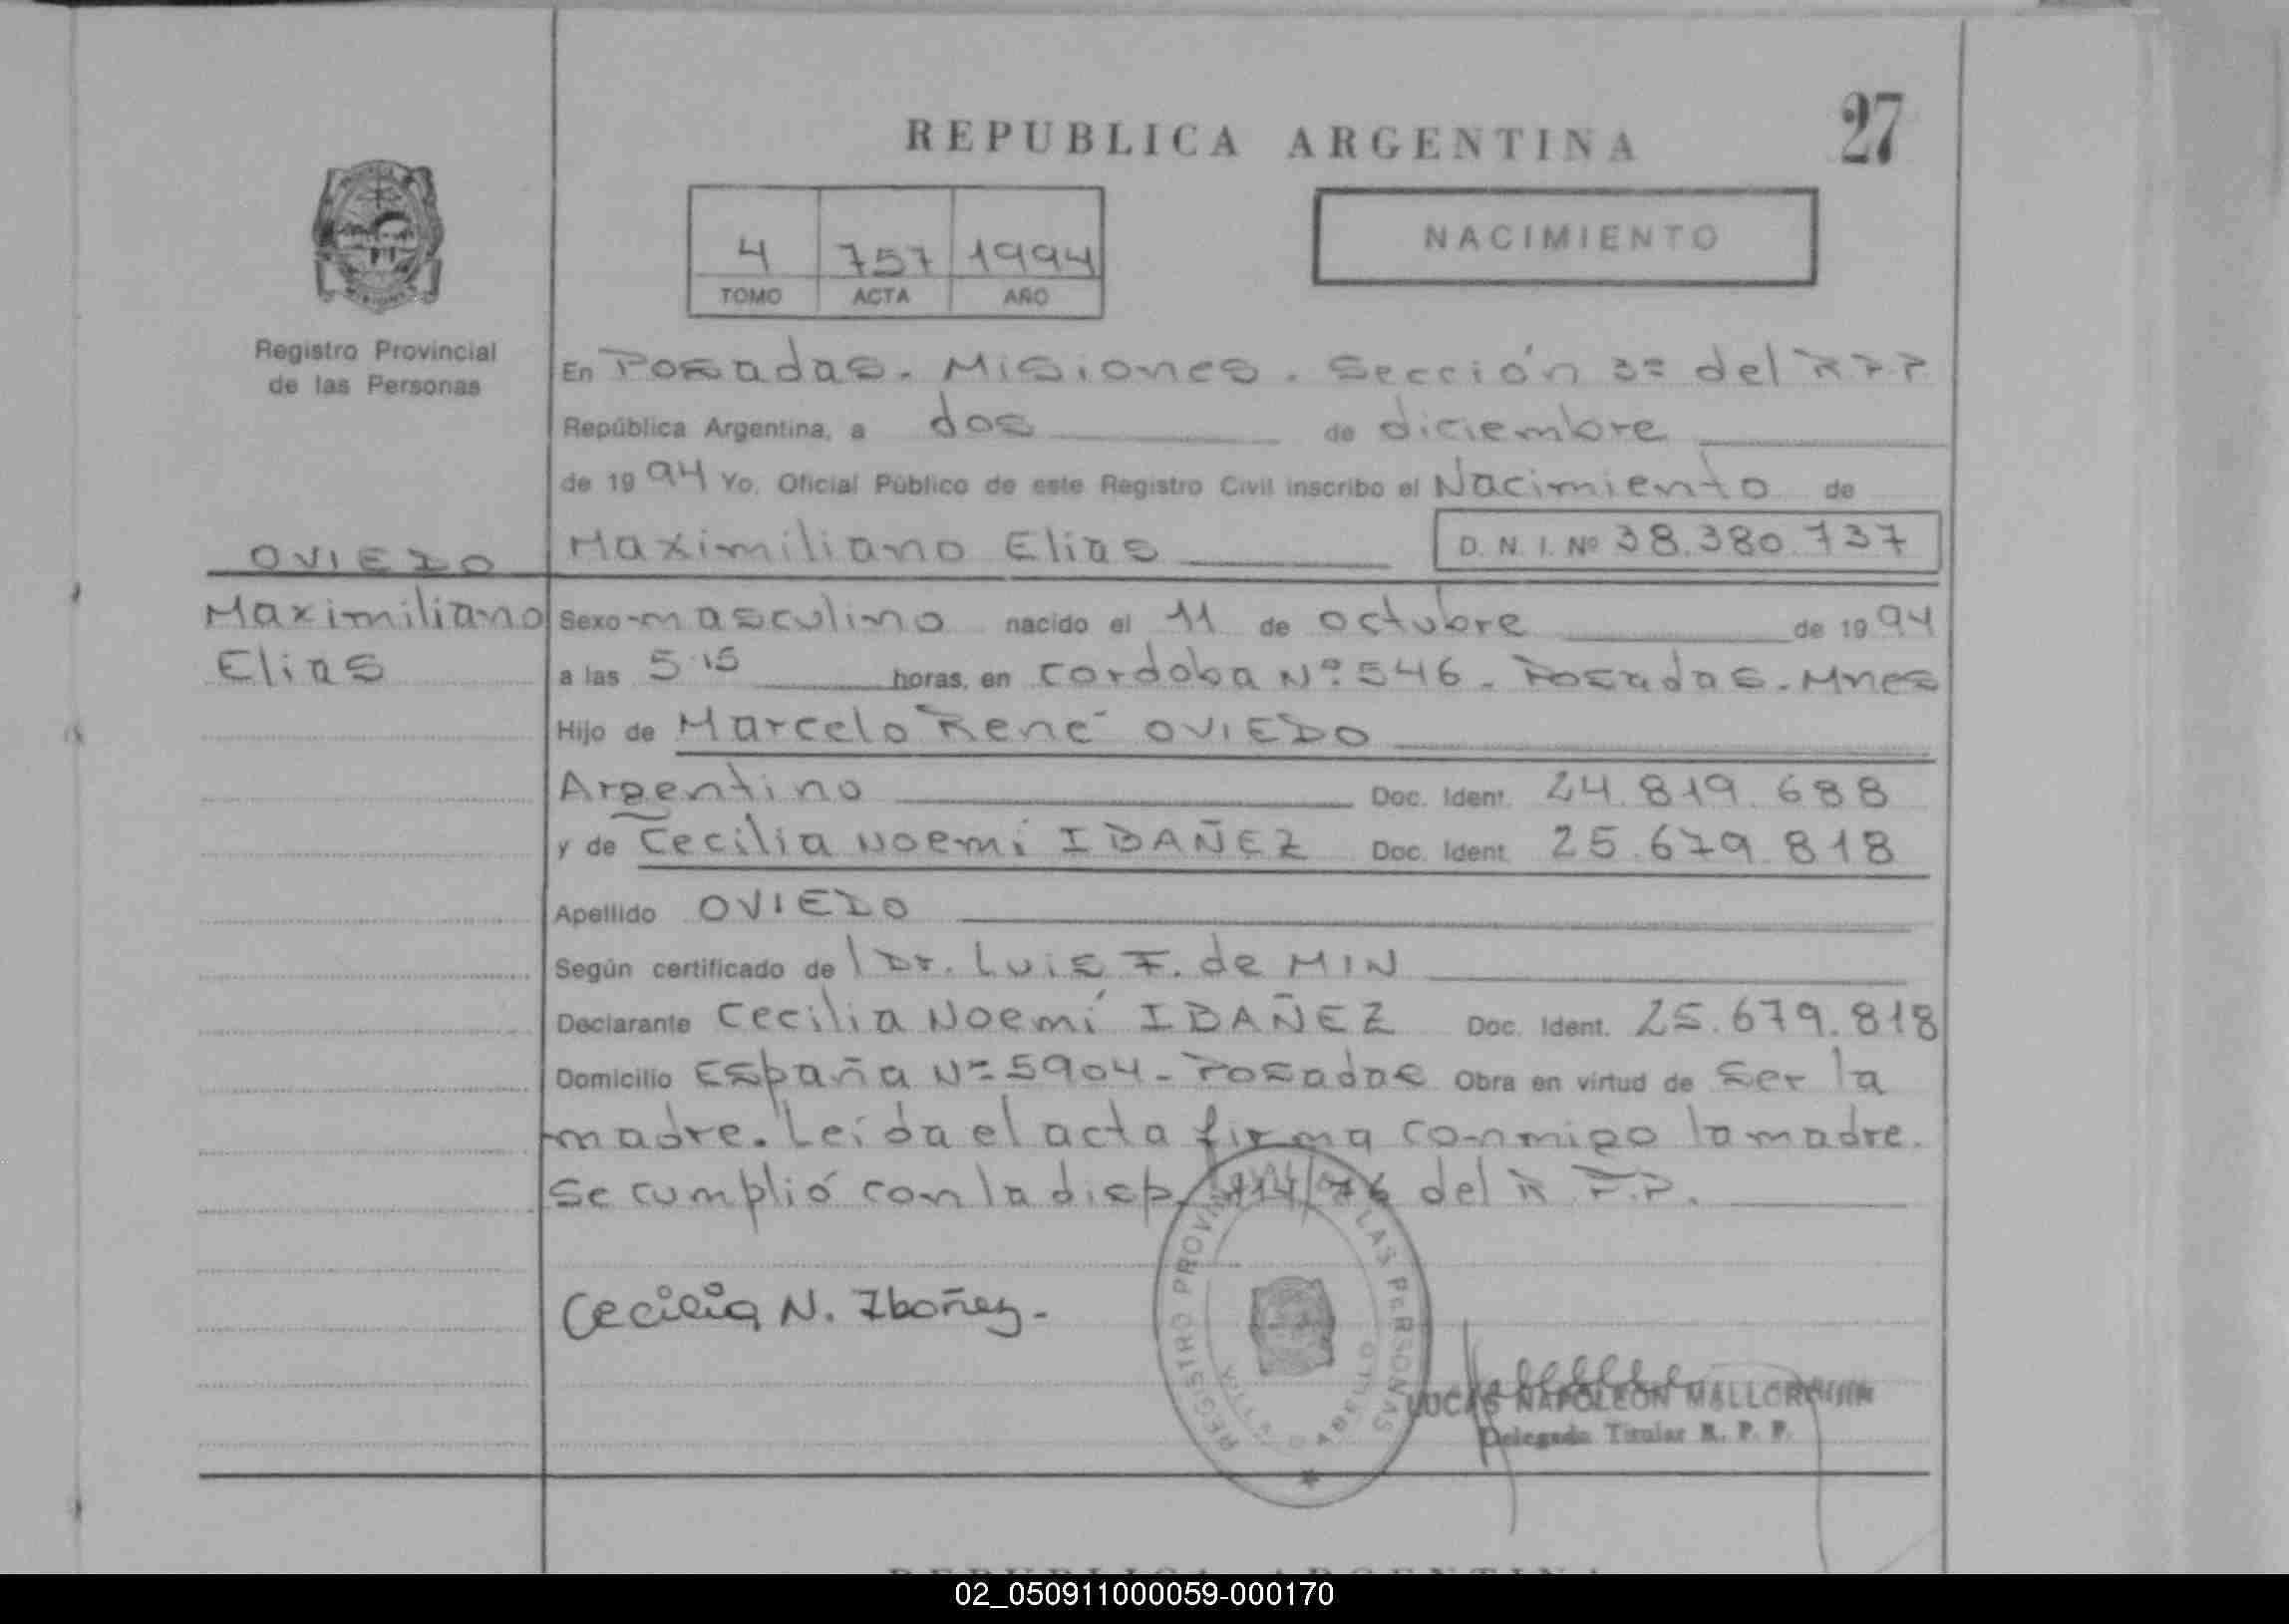 27
REPUBLICA ARGENTINA
NACIMIENTO
4 757 1994
TOMO ACTA AÑO
Registro Provincial
de las Personas
En Posadas. Misiones. Sección 3ª del R.P.P.
República Argentina, a dos de diciembre
de 1994 Yo, Oficial Público de este Registro Civil inscribo el Nacimiento de
Maximiliano Elias D. N. I. Nº 38.380.737
OVIEDO
Maximiliano
Elias
Sexo masculino nacido el 11 de octubre de 1994
a las 5:15 horas, en Cordoba Nº 546 - Posadas - Mnes
Hijo de Marcelo René OVIEDO
Argentino Doc. Ident. 24.819.688
y de Cecilia Noemí IBAÑEZ Doc. Ident. 25.679.818
Apellido OVIEDO
Según certificado del Dr. Luis F. de MIN
Declarante Cecilia Noemí IBAÑEZ Doc. Ident. 25.679.818
Domicilio España Nº 5904 - Posadas Obra en virtud de ser la
madre. Leída el acta firma conmigo la madre.
Se cumplió con la disp. 114/76 del R.P.P.
Cecilia N. Ibañez.-
REGISTRO LAS PERSONAS
LUCAS NAPOLEON
Delegado Titular R. P. P.
REPUBLICA ARGENTINA
02_050911000059-000170